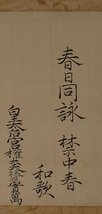 春日同詠禁中春
和歌
皇太后宮権大夫